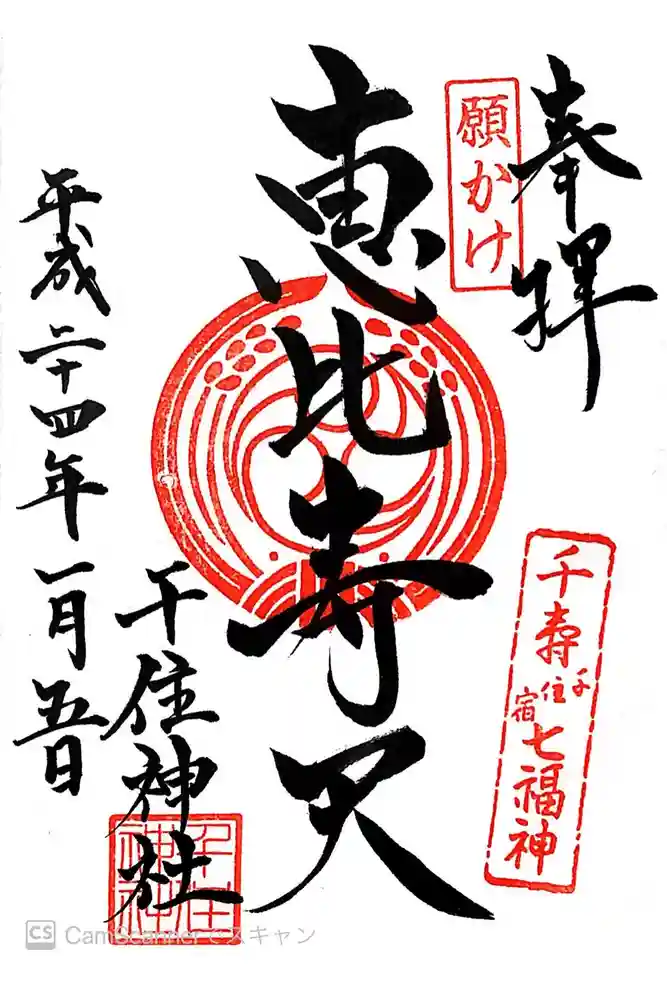 奉拝
願かけ
恵比寿天
千壽
千住宿
七福神
千住神社
平成二十四年一月五日
CS CamScannerでスキャン